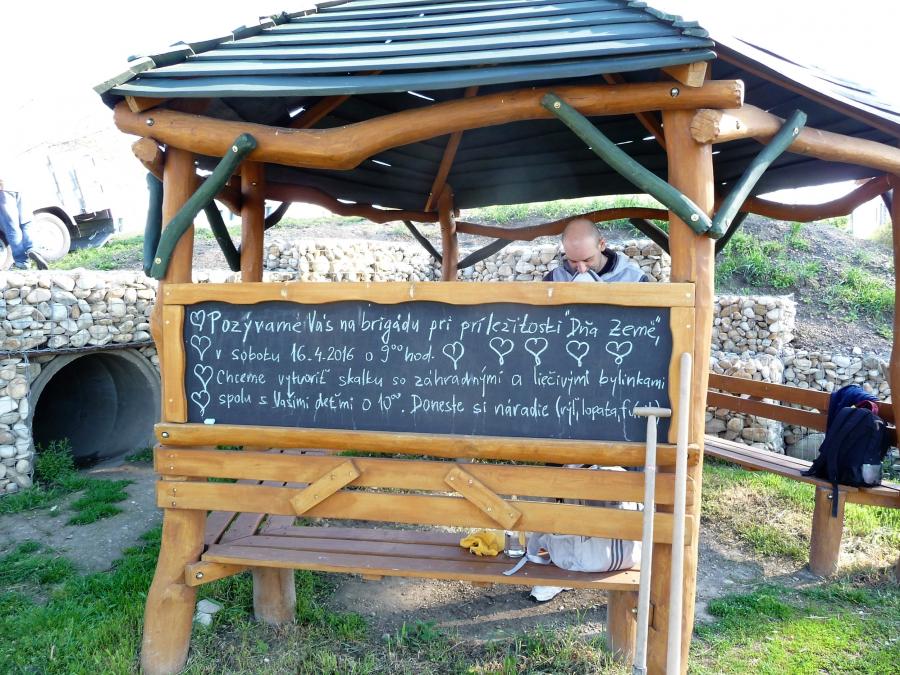 Pozývame Vás na brigádu pri príležitosti "Dňa Zeme",
v sobotu 16.4.2016 o 9⁰⁰ hod.
Chceme vytvoriť skalku so záhradnými a liečivými bylinkami
spolu s Vašimi deťmi o 10⁰⁰. Doneste si náradie (rýľ, lopata,